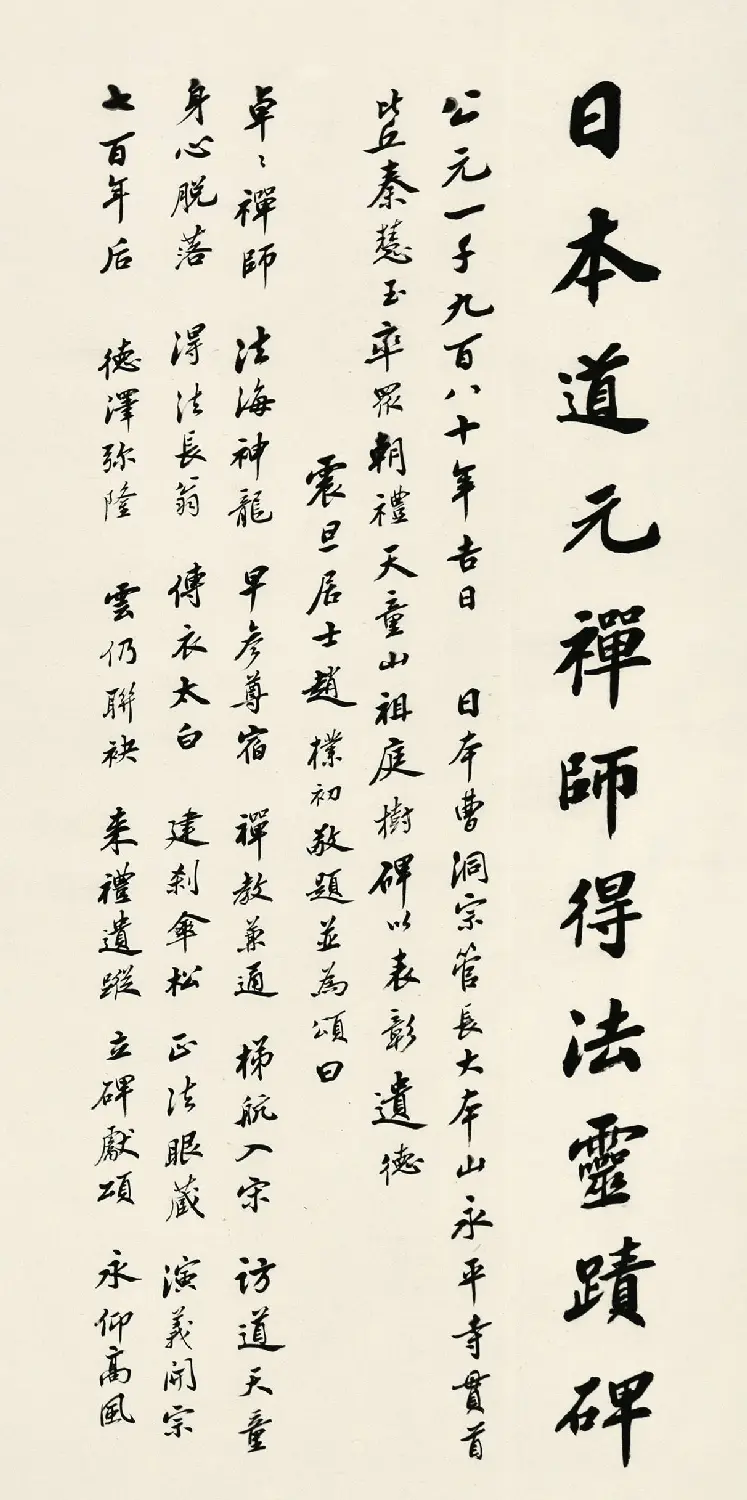 日本道元禪師得法靈蹟碑
公元一千九百八十年吉日 日本曹洞宗管長大本山永平寺貫首
比丘秦慧玉率眾朝禮天童山祖庭樹碑以表彰遺德
震旦居士趙樸初敬題並為頌曰
卓〻禪師 法海神龍 早參尊宿 禪教兼通 梯航入宋 訪道天童
身心脫落 得法長翁 傳衣太白 建剎傘松 正法眼藏 演義開宗
七百年后 德澤弥隆 雲仍聯袂 来禮遺蹤 立碑獻頌 永仰高風